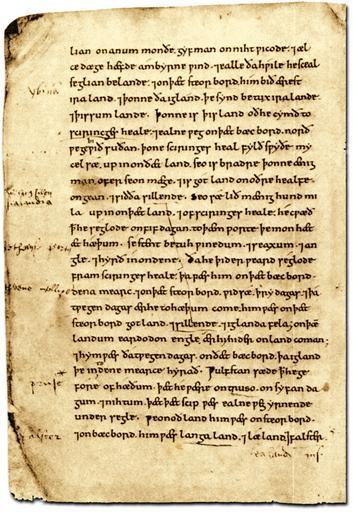 lian on anum monðe. gyf man on niht ƿicode. ⁊ æl
ce dæge hæfde ambyrne ƿind. ⁊ ealle ða hƿile he sceal
seglian be lande. ⁊ on þæt steor bord. him bið ærest
ira land. ⁊ þonne ða igland. þe synd betux ira lande
⁊ þissum lande. Þonne is þis land oð he cymð to
scirincges heale. ⁊ ealne ƿeg on þæt bæc bord. norð
ƿeg ƿið suðan. þone sciringes heal fylð sƿyðe my
cel sæ. up in on ðæt land. seo is bradre þonne ænig
man. ofer seon mæge. ⁊ is got land on oðre healfe
ongean. ⁊ siðða sillende. seo sæ lið mænig hund mi
la. up in on þæt land. ⁊ of sciringes heale. he cƿæð
þæt he seglode. on fif dagan. to þæm porte þe mon hæt
æt hæþum. se stent betuh ƿinedum. ⁊ seaxum. ⁊ an
gle. ⁊ hyrð in on dene. Ða he þider ƿeard seglode
fram sciringes heale. þa ƿæs him on þæt bæc bord
dena mearc. ⁊ on þæt steor bord. ƿid sæ. þry dagas. ⁊ þa
tƿegen dagas ær he to hæþum come. him ƿæs on þæt
steor bord got land. ⁊ sillende. ⁊ iglanda fela. on þæm
landum eardodon engle. ær hi hider on land coman.
⁊ hym ƿæs ða tƿegen dagas. on ðæt bæc bord. þa igland
þe in dene mearce hyrað. Ƿulfstan sæde þæt he ge
fore of hæðum. þæt he ƿære on truso. on syfan da
gum. ⁊ nihtum. þæt þæt scip ƿæs ealne ƿeg yrnende
under segle. Ƿeonod land him ƿæs on steor bord.
⁊ on bæc bord. him ƿæs langa land. ⁊ læland ⁊ falster.